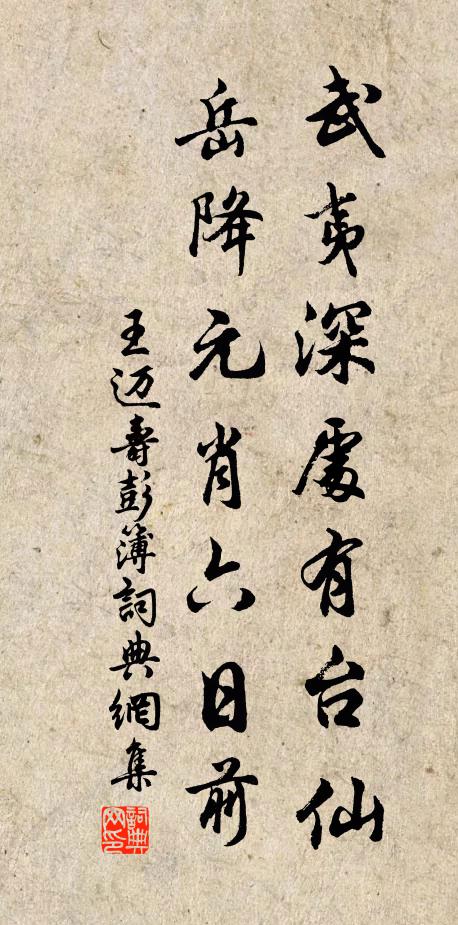 武夷深處有台仙
岳降元肖六日前
王迈壽彭簿詞典網集
詞典网印